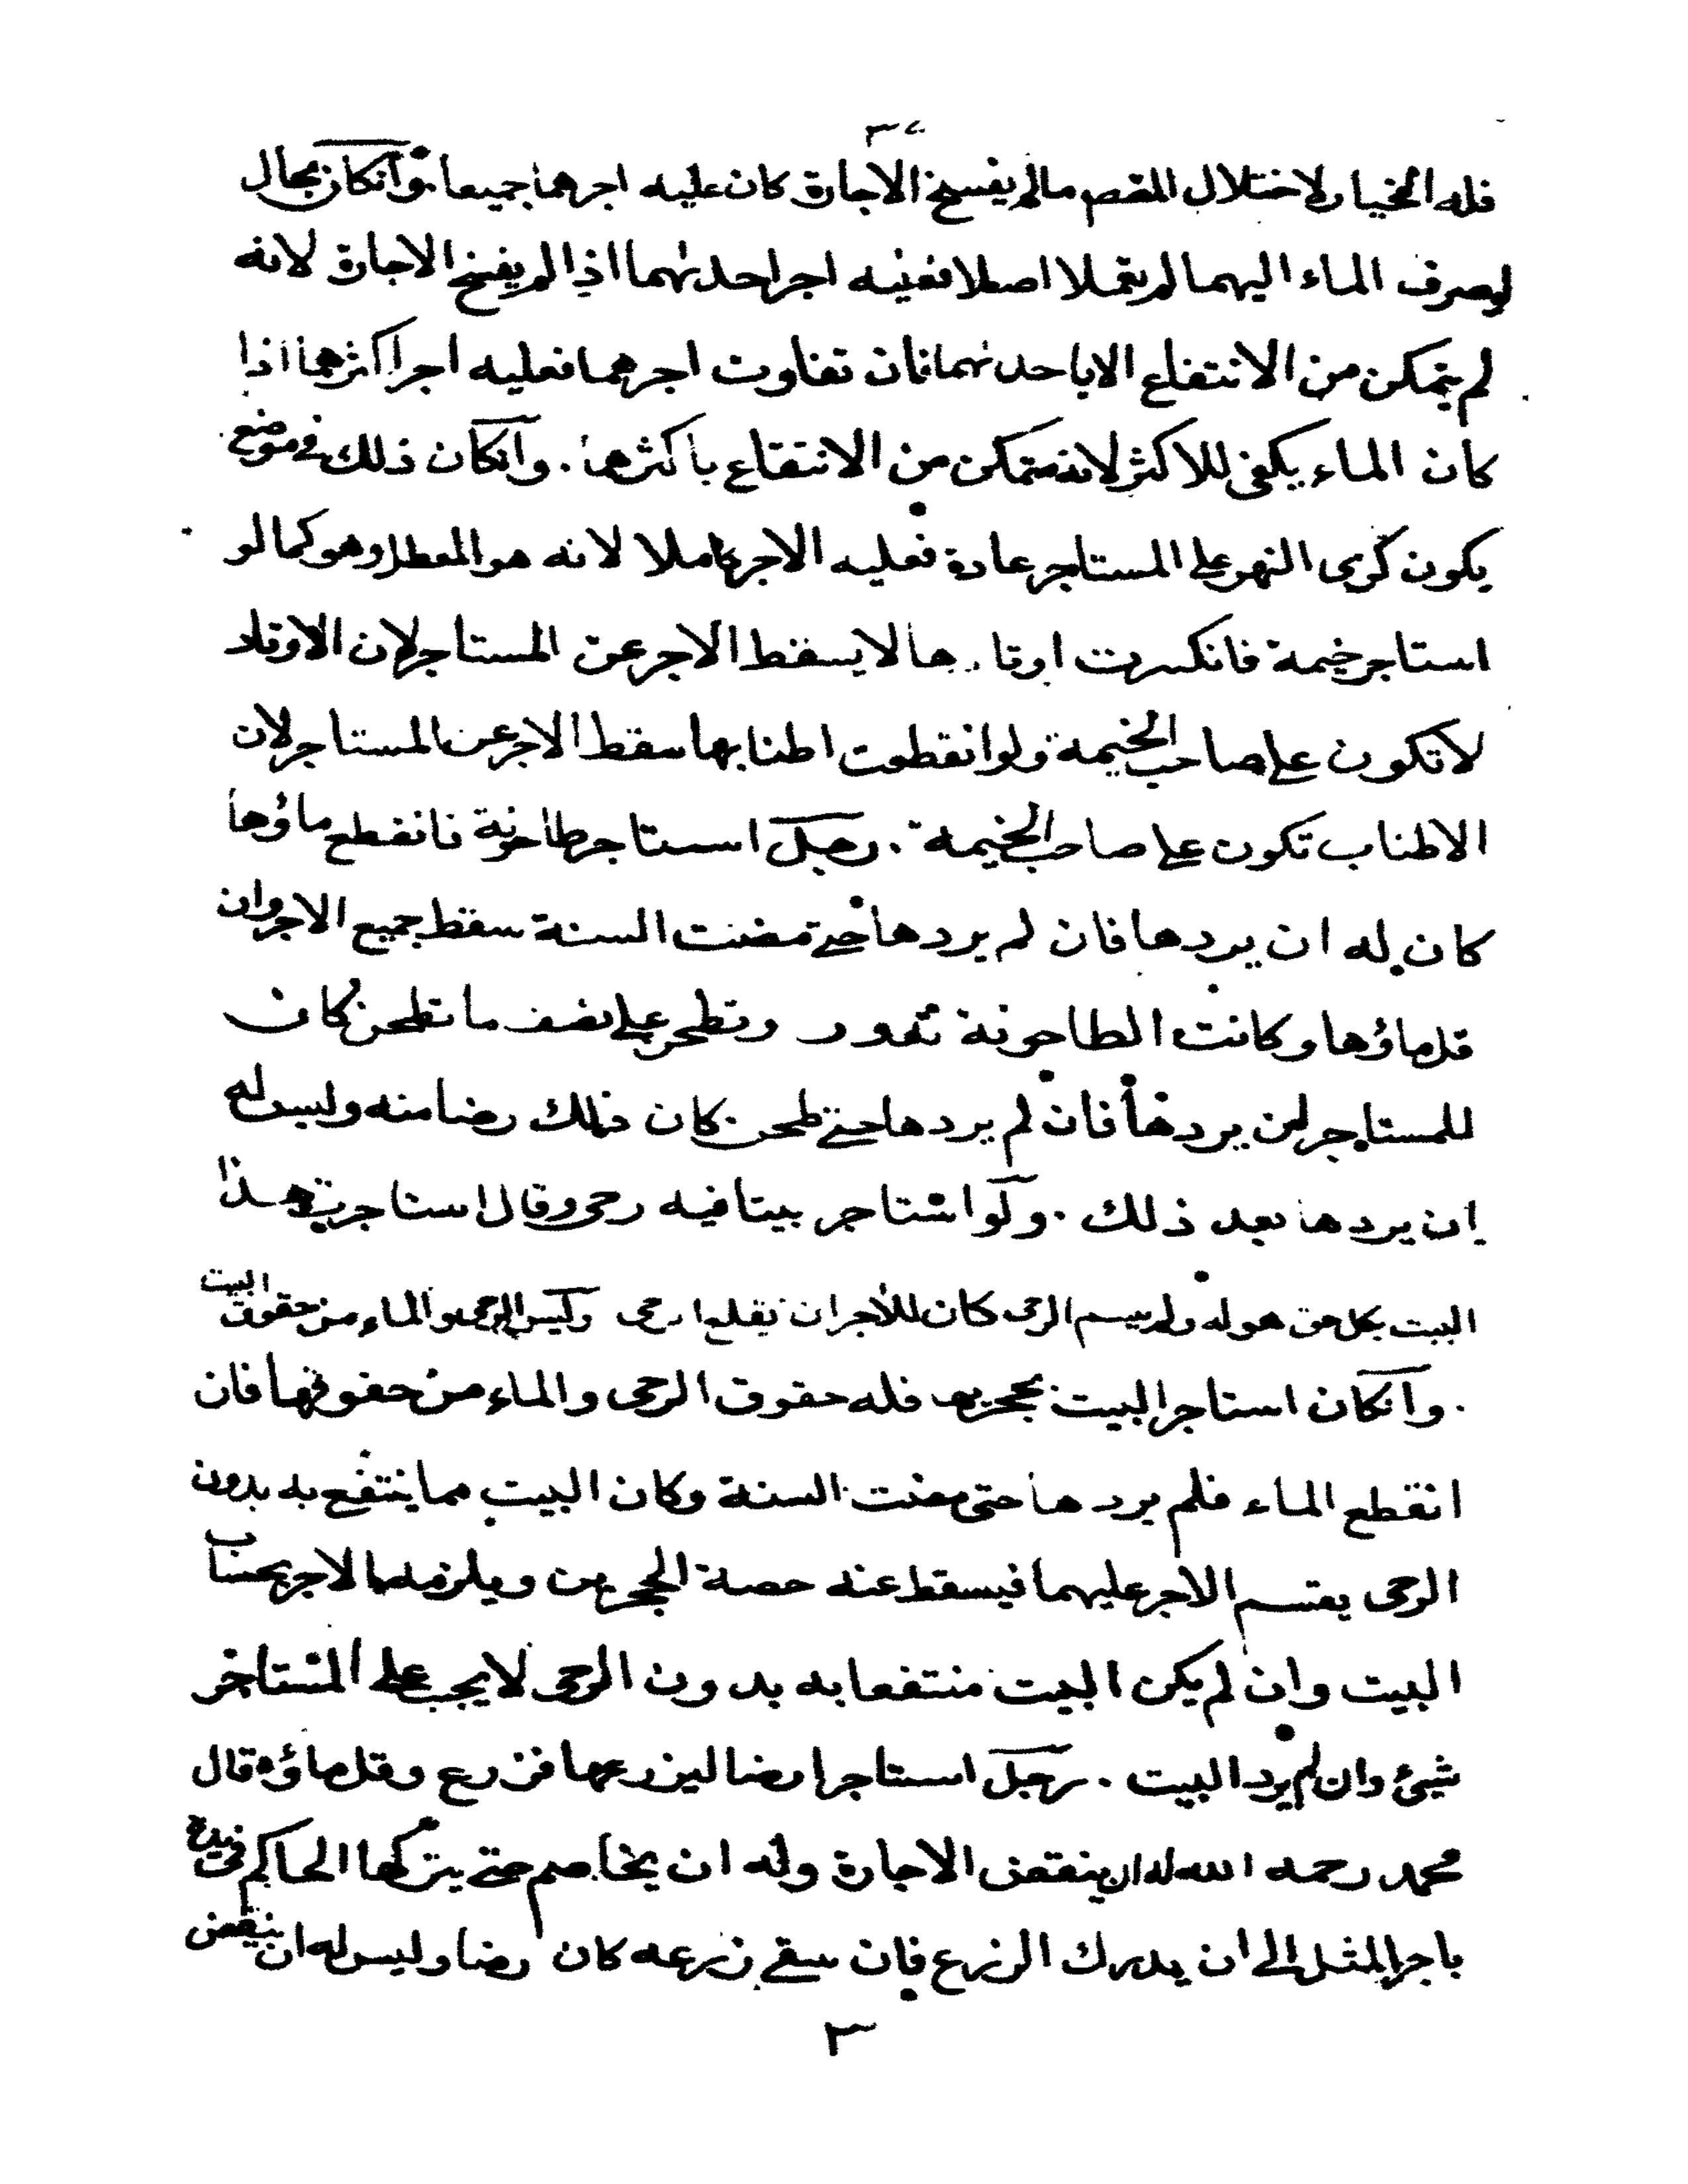 فله الخيار لاختلال المقصم مالم يفسخ الاجارة كان عليه اجرهما جميعا . وانكان بحال
لوصرف الماء اليهما لم يعملا اصلا فعليه اجر احدىهما اذا لم يفسخ الاجارة لانه
لم يتمكن من الانتفاع الا باحدىهما فان تفاوت اجرهما فعليه اجر اكثرهما اذا
كان الماء يكفى للاكثر لانه متمكن من الانتفاع باكثرهما . وانكان ذلك فى موضع
يكون كرى النهر على المستاجر عادة فعليه الاجر كاملا لانه هو المعطل وهو كما لو
استاجر خيمة فانكسرت اوتادها لا يسقط الاجر عن المستاجر لان الاوتاد
لا تكون على صاحب الخيمة ولو انقطعت اطنابها سقط الاجر عن المستاجر لان
الاطناب تكون على صاحب الخيمة . رجل استاجر طاحونة فانقطع ماؤها
كان له ان يردها فان لم يردها حتى مضت السنة سقط جميع الاجر وان
قل ماؤها وكانت الطاحونة تدور وتطحن على نصف ما تطحن كان
للمستاجر ان يردها فان لم يردها حتى طحن كان ذلك رضا منه وليس له
ان يردها بعد ذلك . ولو استاجر بيتا فيه رحى وقال استاجرت هذا
البيت بكل حق هو له ولم يسم الرحى كان للآجر ان يقلع الرحى وليس الرحى والماء من حقوق البيت
. وانكان استاجر البيت بحجريه فله حقوق الرحى والماء من حقوقها فان
انقطع الماء فلم يردها حتى مضت السنة وكان البيت مما ينتفع به بدون
الرحى يقسم الاجر عليهما فيسقط عنه حصة الحجرين ويلزمه الاجر بحساب
البيت وان لم يكن البيت منتفعا به بدون الرحى لا يجب على المستاجر
شيئ وان لم يرد البيت . رجل استاجر ارضا ليزرعها فزرع وقل ماؤه قال
محمد رحمه الله له ان ينقض الاجارة وله ان يخاصم حتى يتركها الحاكم فى يده
باجر المثل الى ان يدرك الزرع فان سقى زرعه كان رضا وليس له ان ينقض